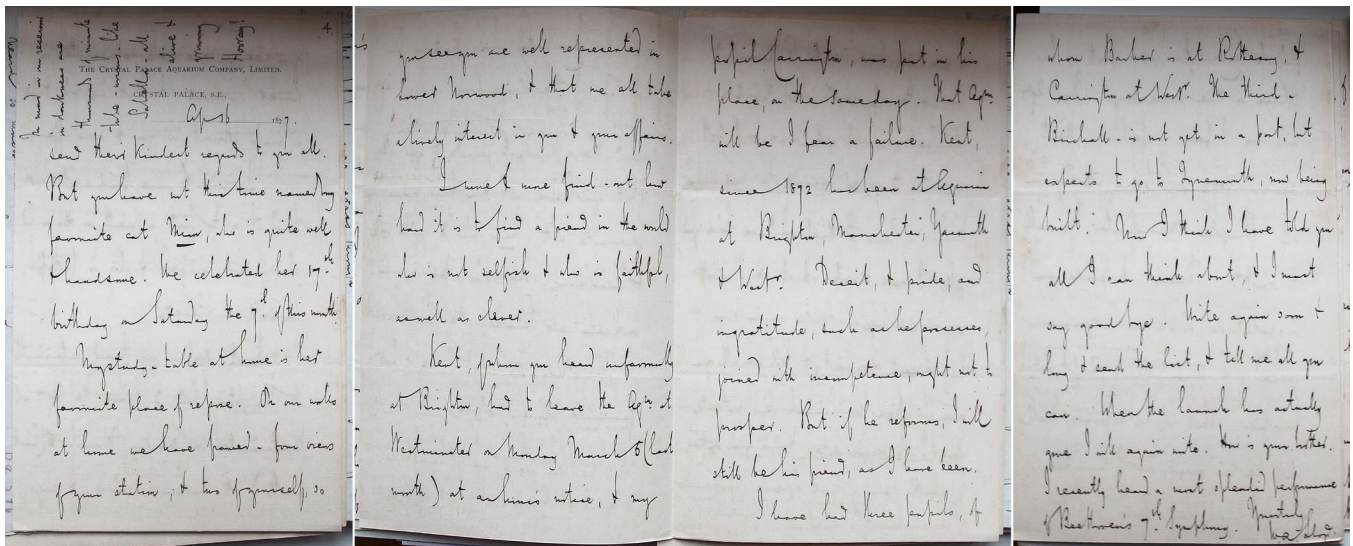 4.
THE CRYSTAL PALACE AQUARIUM COMPANY, LIMITED.
CRYSTAL PALACE, S.E.,
Ap 16 1877.
send their kindest regards to you all.
But you have not this time named my
favourite cat Mim, who is quite well
& handsome. We celebrated her 17th
birthday on Saturday the 7th of this month.
My study-table at home is her
favourite place of repose. On our walls
at home we have framed - four views
of your station, & two of yourself, so
you see you are well represented in
Lower Norwood, & that we all take
a lively interest in you & your affairs.
I more & more find out how
hard it is to find a friend in the world
who is not selfish & who is faithful,
as well as clever.
Kent, of whom you heard unfavourably
at Brighton, had to leave the Aqm at
Westminster on Monday March 5 (last
month) at an hour's notice, & my
pupil Carrington, was put in his
place, on the same day. That Aqm
will be I fear a failure. Kent,
since 1872 has been at Aquaria
at Brighton, Manchester, Yarmouth
& Westr. Deceit, & pride, and
ingratitude, such as he possesses,
joined with incompetence, ought not to
prosper. But if he reforms, I will
still be his friend, as I have been.
I have had three pupils, of
whom Barker is at Rothesay, &
Carrington at Westr. The third -
Birchall - is not yet in a post, but
expects to go to Tynemouth, now being
built. Now I think I have told you
all I can think about, & I must
say good bye. Write again soon &
long & send the list, & tell me all you
can. When the launch has actually
gone I will again write. How is your brother.
I recently heard a most splendid performance
of Beethoven's 7th Symphony. Yours truly
W A Lloyd
In mud in our reservoir
in darkness are
thousands of minute
tube worms - like
Sabella - all
alive &
growing
Hooray!